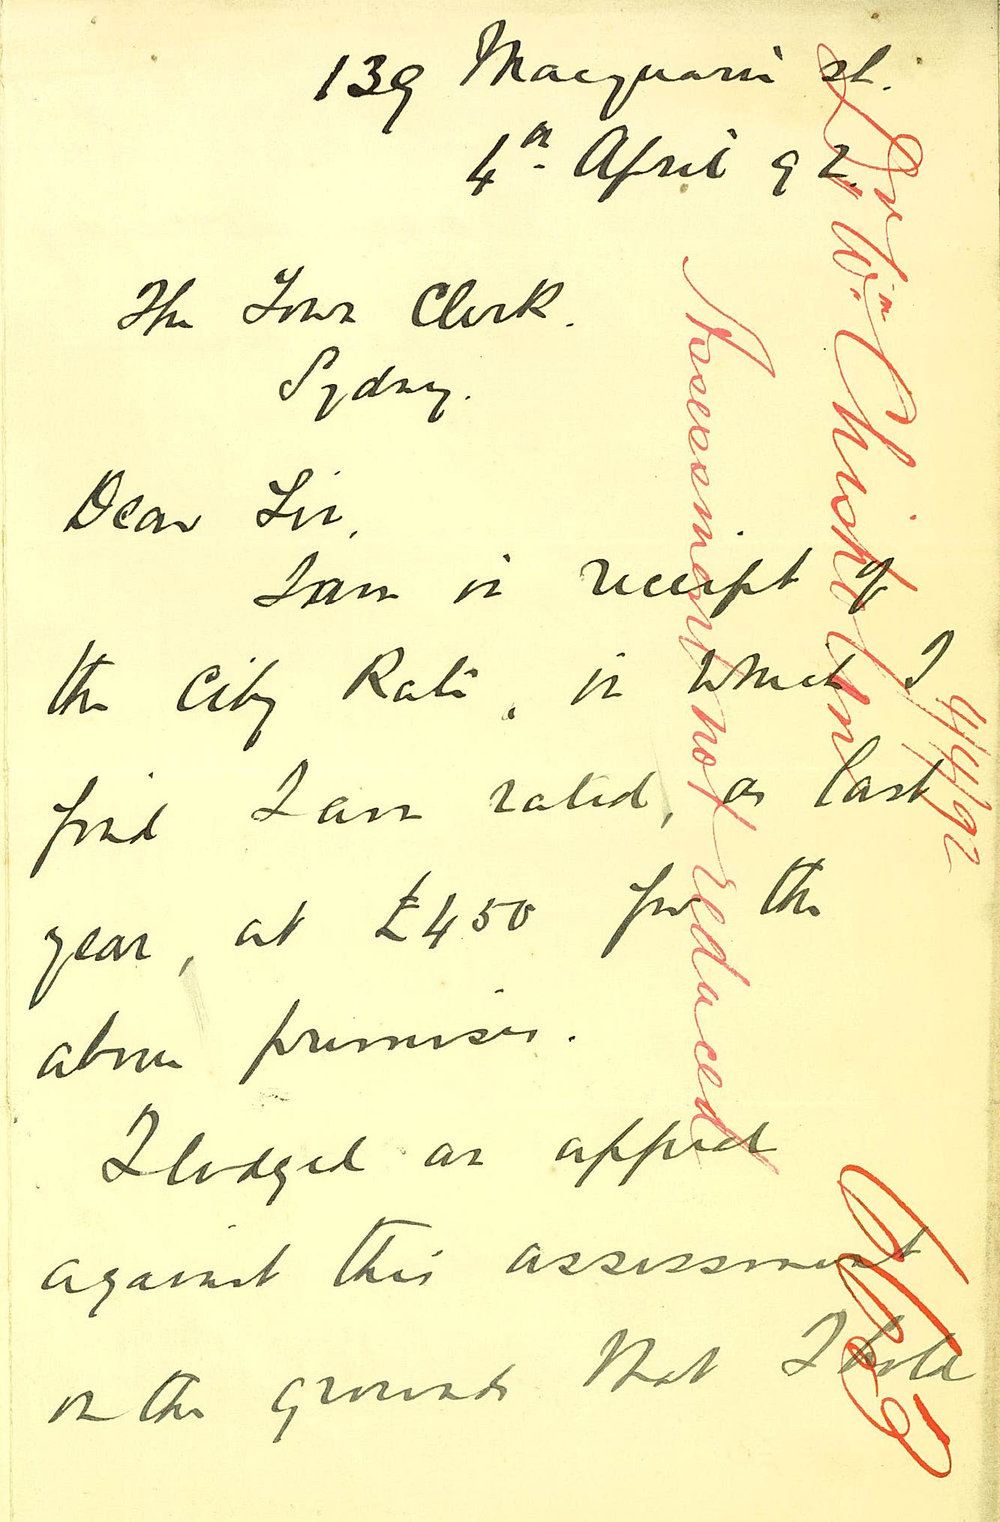 139 Macquarie St.
4th April 92.
The Town Clerk.
Sydney.
Dear Sir,
I am in receipt of
the City Rate, in which I
find I am rated, as last
year, at £450 for the
above premises.
I lodged an appeal
against this assessment
on the grounds that I hold
Dr Wm Chisholm
4/4/92
Assessment not reduced